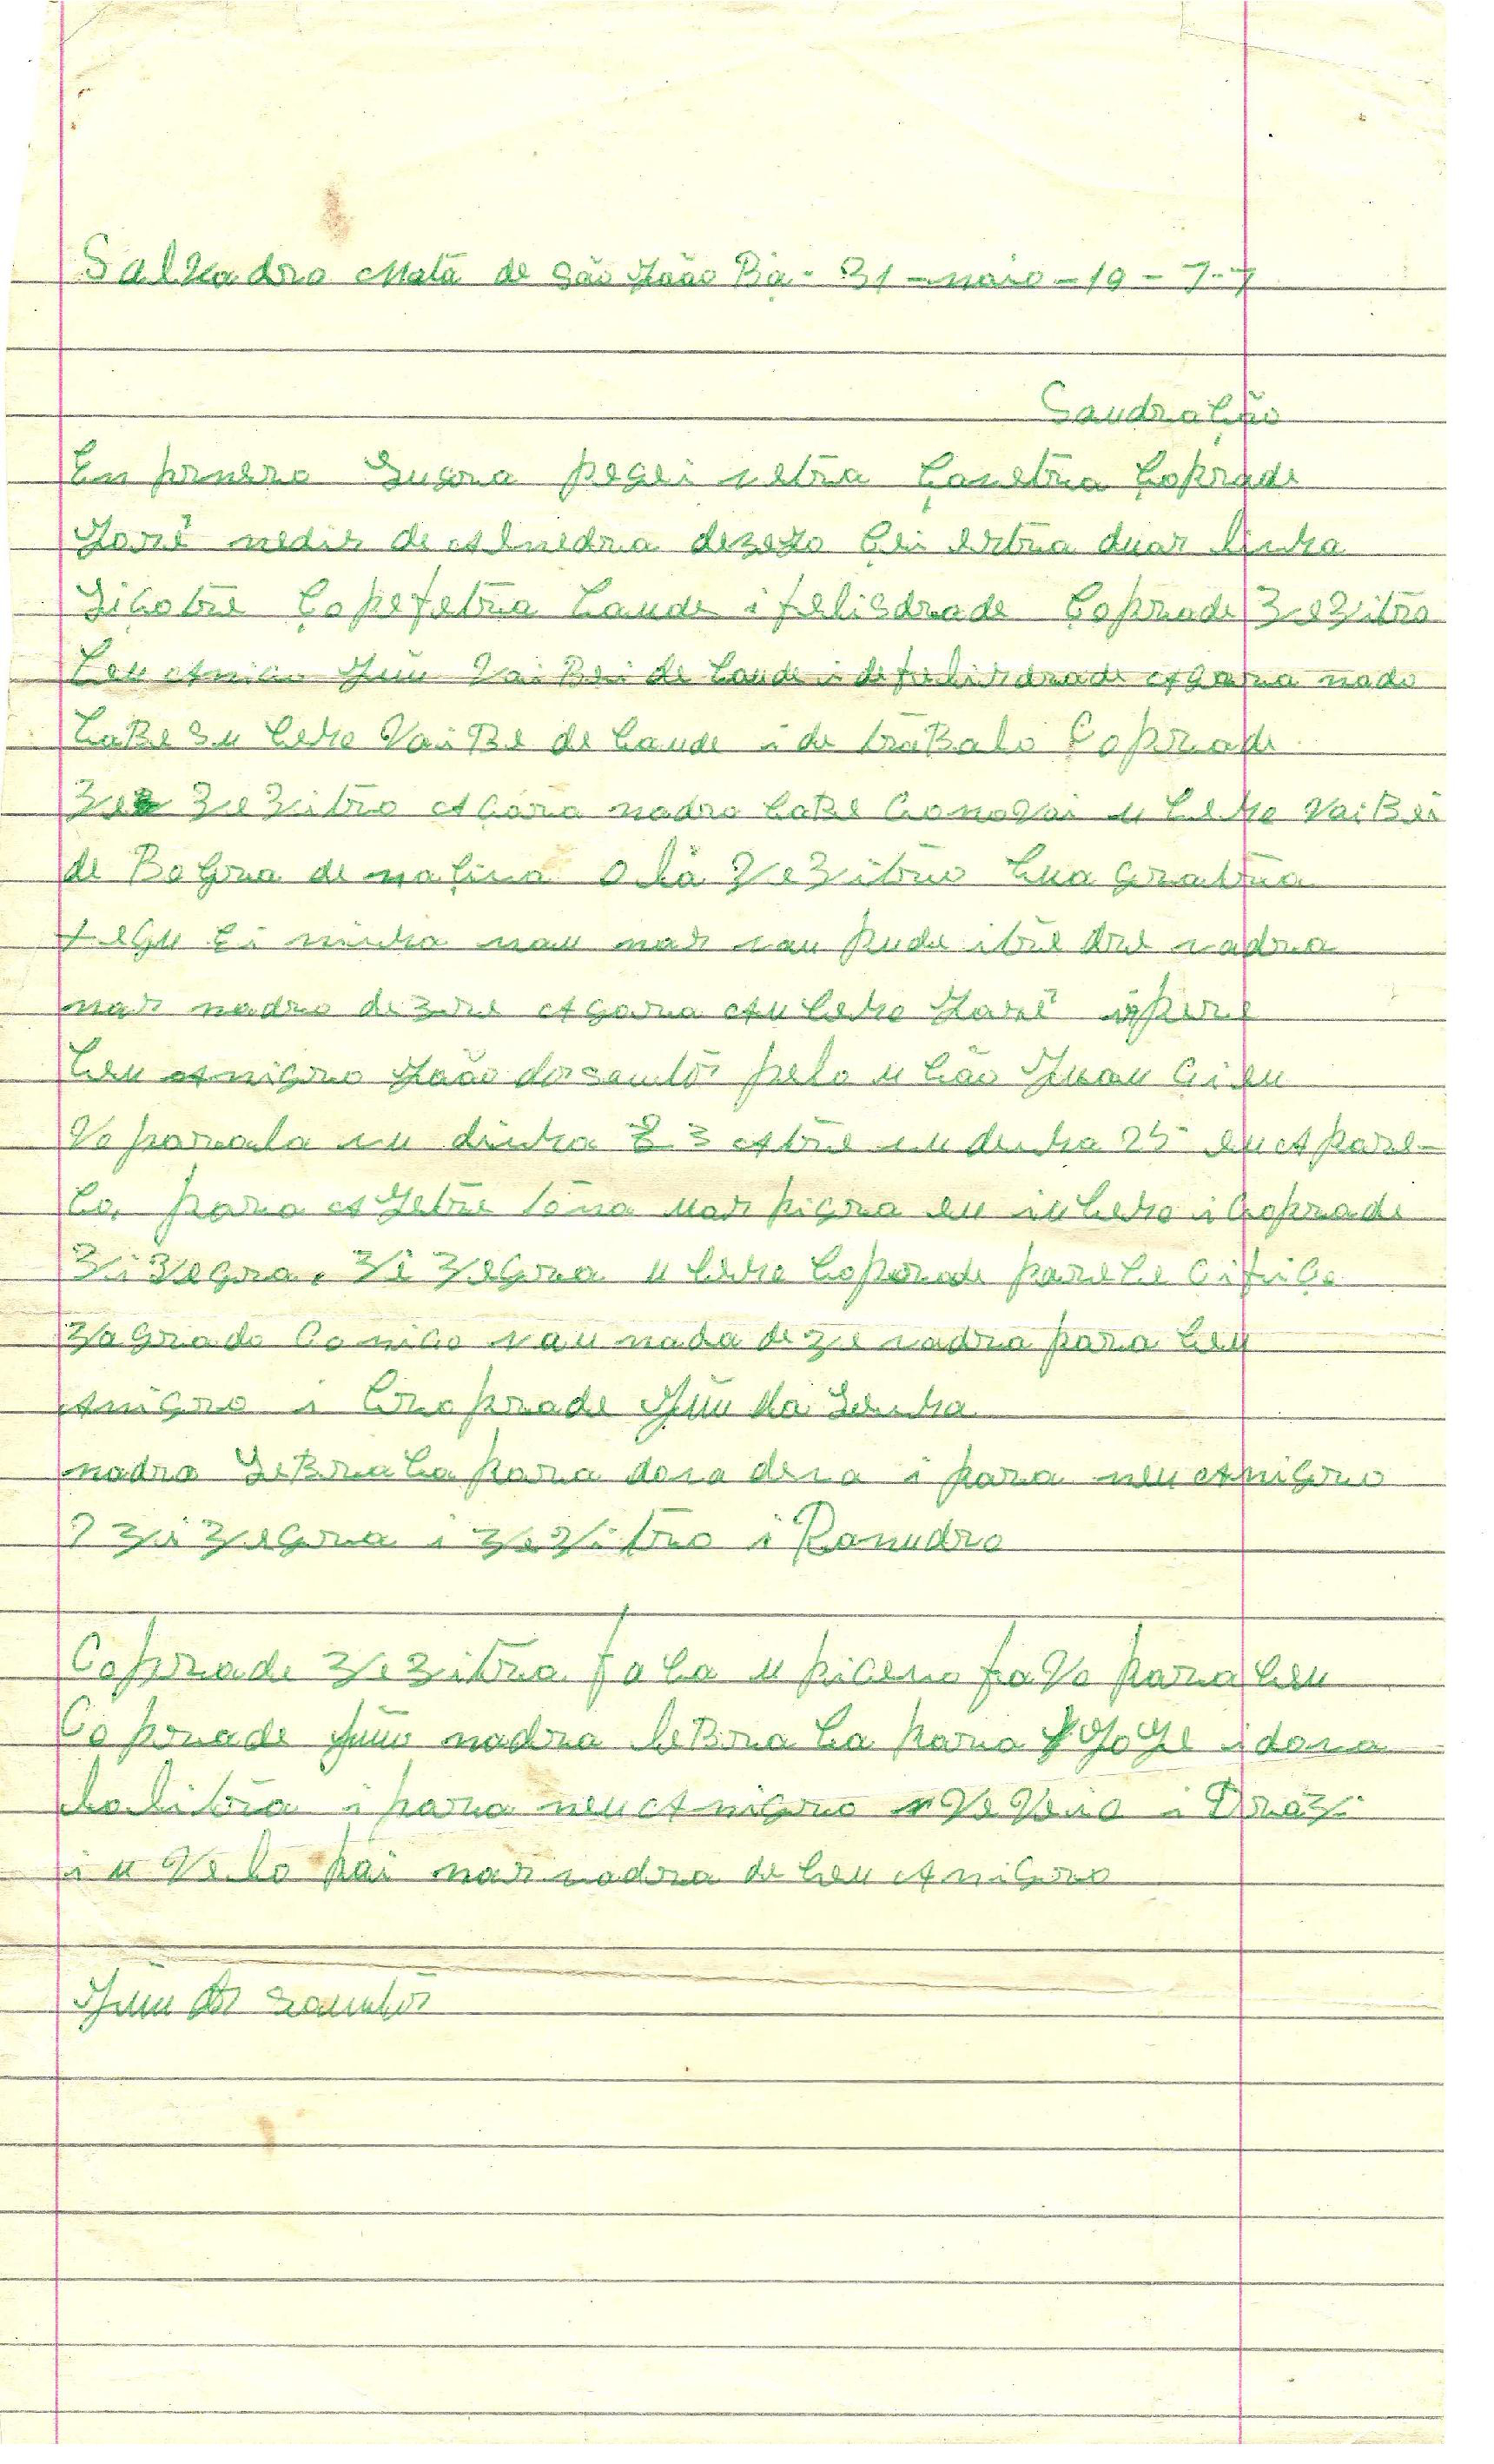 Salvadro Mata de São João Ba - 31 - maio - 19 - 7-7
Saudração
En prnero lugra peguei netra canetra Coprade
José nedis de Alnedra dezejo qui estra duas linha
licotre Copefetra saude i felisdrade Coprade zezitro
seu Anico Juu vai Bei de saude i defelisdrade Agora nado
saBe su seho vai Be de saude i de traBalo Coprade
zezitro Agora nadro saBe Comovai u seho vai Bei
de Bogra de naçina Olá zezitro sua gratra
xegu ci minha nau nas nau pude itre dre nadra
nas nadro dizre Agora Au seho José ispere
seu Anigro João dos santos pelo u são Juau ci eu
vo parala nu dinha 23 Atre nu dinha 25 eu Apare-
so para A getre tona uas pigra eu iu seho i Coprade
zizegra. zizegra u seho Coprade parese ci fico
zagrado Comico nau nada dize nadra para seu
Anigro i Croprade Juu da Senha
nadro leBrasa para dona dena i para neu Anigro
zizegra i zezitro i Ranudro
Coprade zezitra fasa u piceno favo para seu
Coprade Juu nadra leBrasa para Joje i dona
i para neu Anigro veveio i
i u Velo pai nas nadra de seu Anigro
Juu dos santos